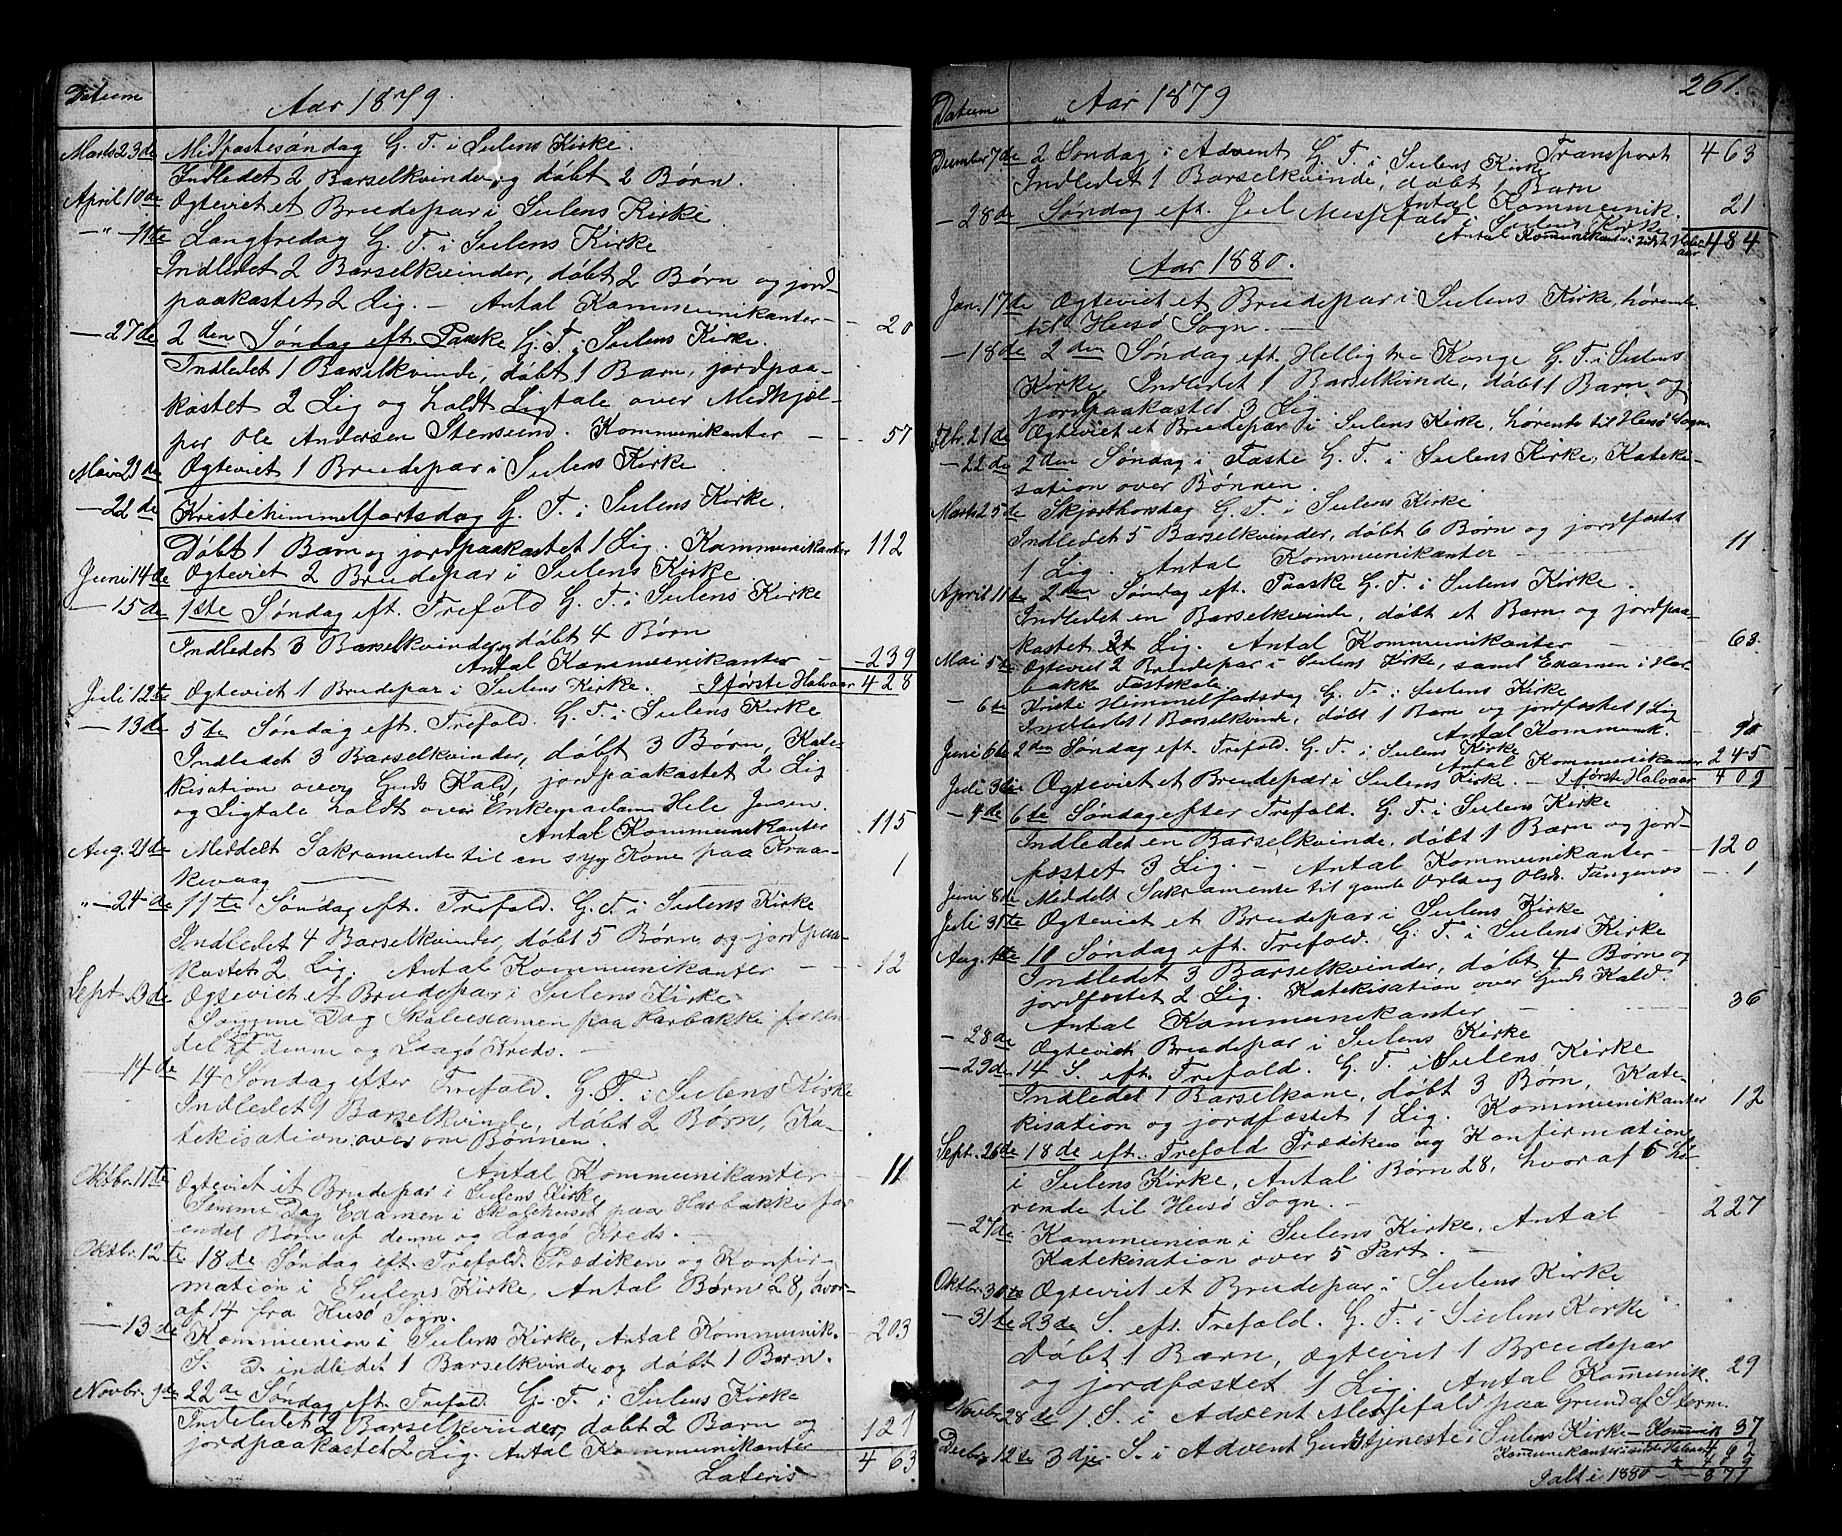 Datum Aar 1879
Marts 23de Midfastesøndag G. T. i Sulens Kirke.
Indledet 2 Barselkvinder, og døbt 2 Børn.
April 10de Ogteviet et Brudepar i Sulens Kirke
-"- 11te Langfredag G. T. i Sulens Kirke
Indledet 2 Barselkvinder, døbt 2 Børn og jord-
paakastet 2 Lig. — Antal Kommunikanter — 20
— 27de 2den Søndag eft. Paaske G. T. i Sulens Kirke.
Indledet 1 Barselkvinde, døbt 1 Barn, jordpaa-
kastet 2 Lig og holdt Ligtale over Medhjæl-
per Ole Andersen Stensund. Kommunikanter — 57
Mai 21de Ogteviet 1 Brudepar i Sulens Kirke
— 22de Kristihimmelfartsdag G. T. i Sulens Kirke.
Døbt 1 Barn og jordpaakastet 1 Lig. Kommunikanter 112
Juni 14de Ogteviet 2 Brudepar i Sulens Kirke
— 15de 1ste Søndag eft. Trefold G. T. i Sulens Kirke
Indledet 3 Barselkvinder og døbt 4 Børn
Antal Kommunikanter — 239
Juli 12te Ogteviet 1 Brudepar i Sulens Kirke. I første Halvaar 428
— 13de 5te Søndag eft. Trefold. G. T. i Sulens Kirke
Indledet 3 Barselkvinder, døbt 3 Børn, Kate-
kisation over Guds Kald, jordpaakastet 2 Lig
og Ligtale holdt over Enkemadam Hele Jensen.
Antal Kommunikanter 115
Aug. 21de Meddelt Sakramente til en syg Kone paa Kraa-
kevaag 1
"— 24de 11te Søndag eft. Trefold. G. T. i Sulens Kirke
Indledet 4 Barselkvinder, døbt 5 Børn og jordpaa-
kastet 2 Lig. Antal Kommunikanter — 12
Sept. 13de Ogteviet et Brudepar i Sulens Kirke.
Samme Dag Skoleexamen paa Harbakke for en
del Børn af denne og Laagø Kreds. —
— 14de 14 Søndag efter Trefold. G. T. i Sulens Kirke
Indledet 1 Barselkvinde, døbt 2 Børn, Ka-
tekisation over om Bønnen.
Antal Kommunikanter — 11
Oktbr. 11te Ogteviet et Brudepar i Sulens Kirke
Samme Dag Examen i Skolehuset paa Harbakke for
endel Børn af denne og Laagø Kreds. —
Oktbr. 12te 18de Søndag eft. Trefold. Prædiken og Konfir-
mation i Sulens Kirke, Antal Børn 28, hvor-
af 14 fra Husø Sogn.
— 13de Kommunion i Sulens Kirke, Antal Kommunik. 203
S. D. indledet 1 Barselkvinde og døbt 1 Barn.
Novbr. 9de 22de Søndag eft. Trefold. G. T. i Sulens Kirke
Indledet 2 Barselkvinder, døbt 2 Barn og
jordpaakastet 2 Lig. Antal Kommunikanter 121
Lateris 463
261.
Datum Aar 1879
December 7de 2 Søndag i Advent G. T. i Sulens Kirke Transport 463
Indledet 1 Barselkvinde, døbt 1 Barn
Antal Kommunik. 21
— 28de Søndag eft. Jul Messefald i Sulens Kirke
Antal Kommunikanter i sidste Halvaar 484
Aar 1880.
Jan. 17de Ogteviet et Brudepar i Sulens Kirke, hørende
til Husø Sogn. —
— 18de 2den Søndag eft. Hellig tre Konge G. T. i Sulens
Kirke, Indledet 1 Barselkvinde, døbt 1 Barn og
jordpaakastet 3 Lig
Febr. 21de Ogteviet et Brudepar i Sulens Kirke, hørende til Husø Sogn
— 22de 2den Søndag i Faste G. T. i Sulens Kirke, Kateki-
sation over Bønnen.
Marts 25de Skjærthorsdag G. T. i Sulens Kirke
Indledet 5 Barselkvinder, døbt 6 Børn og jordfæstet
1 Lig. Antal Kommunikanter — 11
April 11te 2den Søndag eft. Paaske G. T. i Sulens Kirke.
Indledet en Barselkvinde, døbt et Barn og jordpaa-
kastet Lig. Antal Kommunikanter — 63.
Mai 5te Ogteviet 2 Brudepar i Sulens Kirke, samt Examen i Har
bakke Fastskole
— 6te Kristi Himmelfartsdag G. T. i Sulens Kirke
Indledet 1 Barselkvinde, døbt 1 Barn og jordfæstet 1 Lig
Antal Kommunik. — 90
Juni 6te 2den Søndag eft. Trefold. G. T. i Sulens Kirke
Antal Kommunikanter 245
Juli 3die Ogteviet et Brudepar i Sulens Kirke. — I første Halvaar 409
— 4de 6te Søndag efter Trefold. G. T. i Sulens Kirke
Indledet en Barselkvinde, døbt 1 Barn og jord-
fæstet 3 Lig. — Antal Kommunikanter — 120
Juni 8de Meddelt Sakramente til gamle Olsd. Tangenes — 1
Juli 31te Ogteviet et Brudepar i Sulens Kirke
Aug. 1ste 10 Søndag eft. Trefold. G. T. i Sulens Kirke
Indledet 3 Barselkvinder, døbt 4 Børn og
jordfæstet 2 Lig. Katekisation over Guds Kald.
Antal Kommunikanter — 36
— 28de Ogteviet Brudepar i Sulens Kirke
— 29de 14 S. eft. Trefold. G. T. i Sulens Kirke
Indledet 1 Barselkone, døbt 3 Børn, Kate-
kisation og jordfæstet 1 Lig. Kommunikanter 12
Sept. 26de 18de eft. Trefold Prædiken og Konfirmation
i Sulens Kirke, Antal Børn 28, hvoraf 6 hø-
rende til Husø Sogn. —
— 27de Kommunion i Sulens Kirke, Antal — 227
Katekisation over 5 Part. —
Oktbr. 30te Ogteviet et Brudepar i Sulens Kirke
— 31te 23de S. eft. Trefold. G. T. i Sulens Kirke
Døbt 1 Barn, Ogteviet 1 Brudepar
og jordfæstet 1 Lig. Antal Kommunik. 29
Novbr. 28de 1. S. i Advent Messefald paa Grund af Storm
Decbr. 12te 3dje S. i Advent Gudstjeneste i Sulens Kirk. — Kommunik 37
Kommunikanter i sidste Halvaar 462
+ 409
Ialt i 1880 — 871